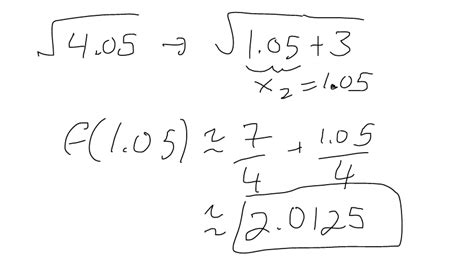 √4.05 → √1.05 + 3
x₂ = 1.05
f(1.05) ≈ 7/4 + 1.05/4
≈ 2.0125